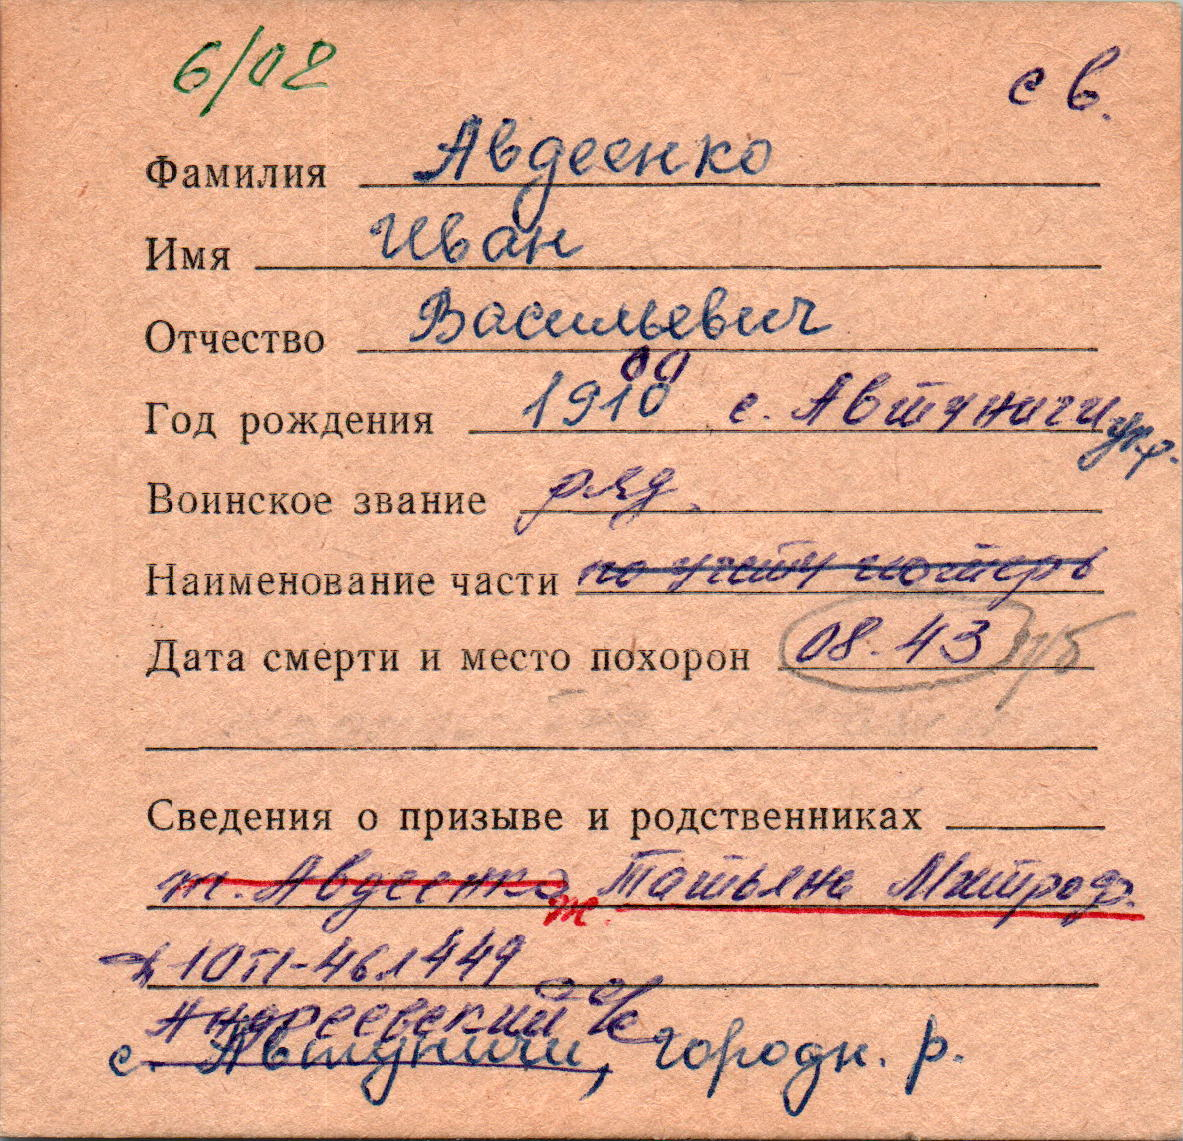 6/02
с в.
Фамилия Авдеенко
Имя Иван
Отчество Васильевич
09
Год рождения 1910 с. Автуничи укр.
Воинское звание ряд.
Наименование части по учету потерь
Дата смерти и место похорон 08.43 п/б
Сведения о призыве и родственниках
ж. Авдеенко ж. Татьяна Митроф.
10П-461449
Андреевский с/с
с. Автуничи, городн. р.